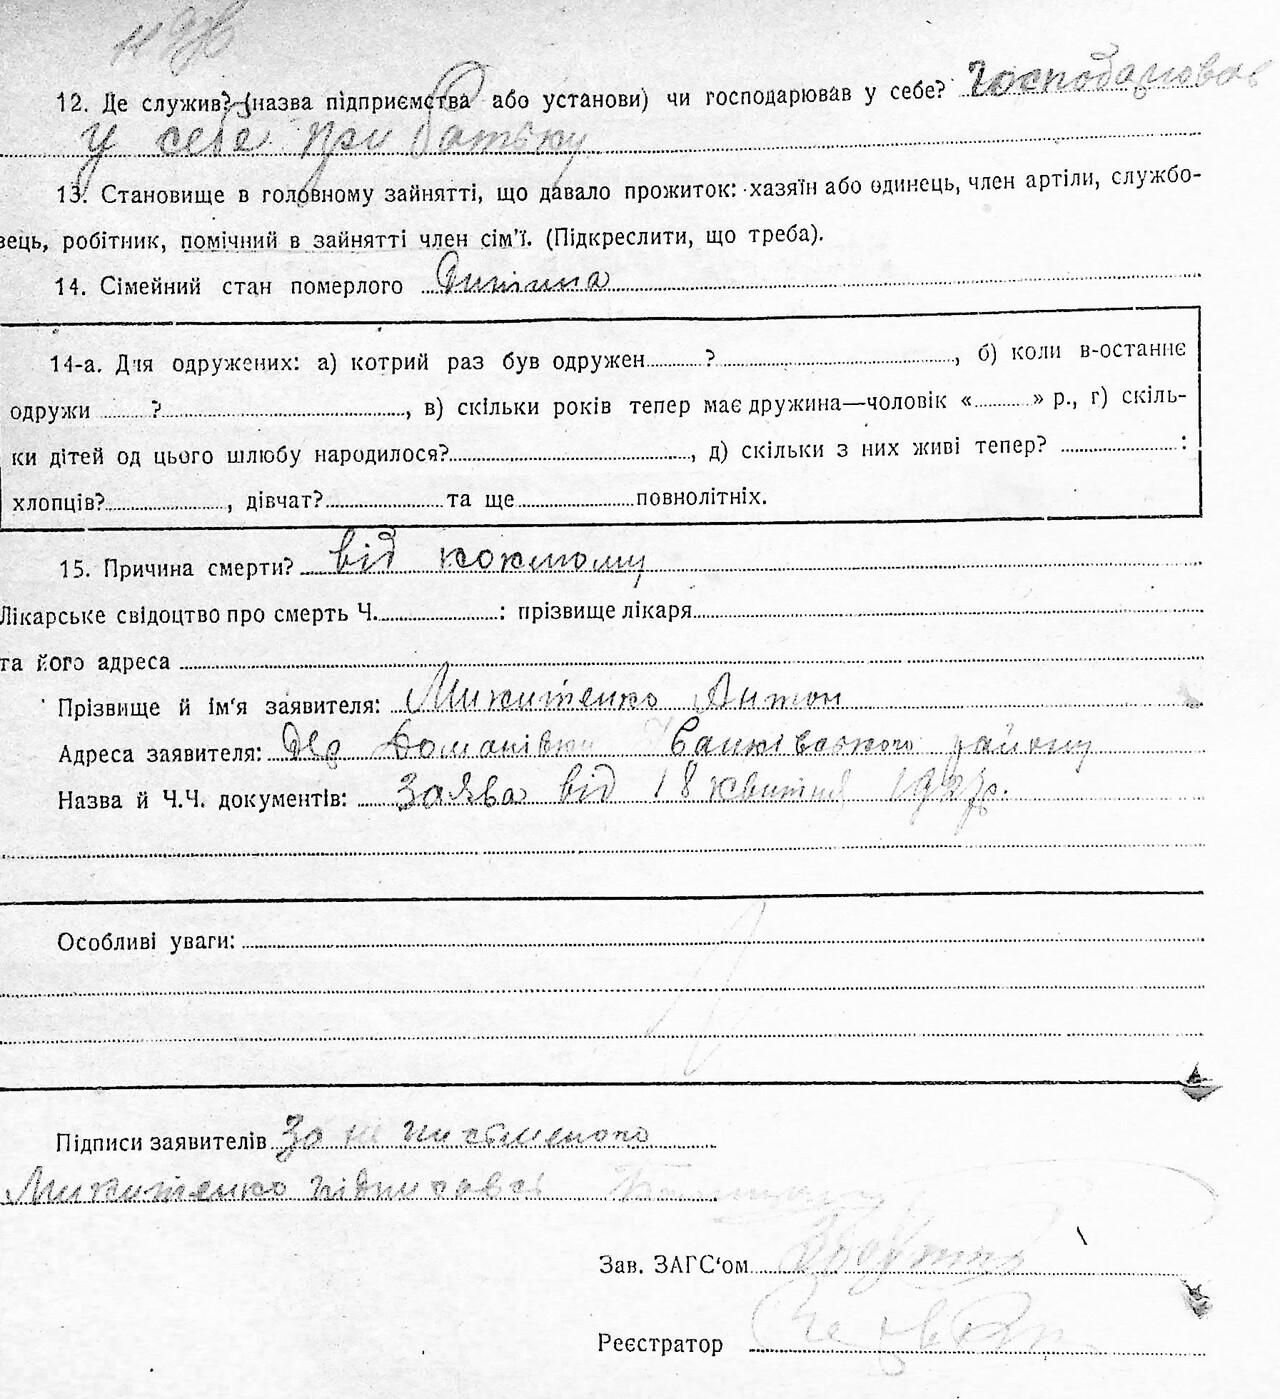 12. Де служив? (назва підприємства або установи) чи господарював у себе? Господарював
у себе при батьку
13. Становище в головному зайнятті, що давало прожиток: хазяїн або одинець, член артіли, службо-
вець, робітник, помічний в зайнятті член сім'ї. (Підкреслити, що треба).
14. Сімейний стан померлого Дитина
14-а. Для одружених: а) котрий раз був одружен ? , б) коли в-останнє
одружи ? , в) скільки років тепер має дружина—чоловік « » р., г) скіль-
ки дітей од цього шлюбу народилося? , д) скільки з них живі тепер? :
хлопців? , дівчат? та ще повнолітніх.
15. Причина смерти? від коклюшу
Лікарське свідоцтво про смерть Ч. : прізвище лікаря
та його адреса
Прізвище й ім'я заявителя: Микитенко Антон
Адреса заявителя: Доманівки Іванківського району
Назва й Ч.Ч. документів: Заява від 18 квітня 1927р.
Особливі уваги:
Підписи заявителів За не письменого
Микитенко підписався
Зав. ЗАГС'ом
Реєстратор